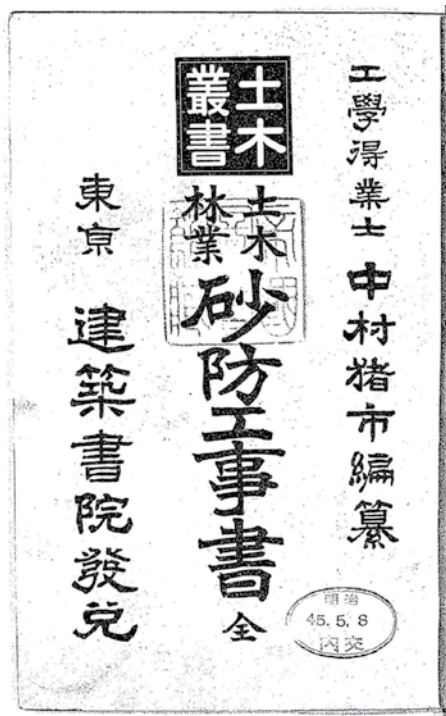 工學得業士 中村猪市編纂
土木
叢書
土木
林業
砂防工事書 全
東京 建築書院發兌
明治
45.5.8
内交